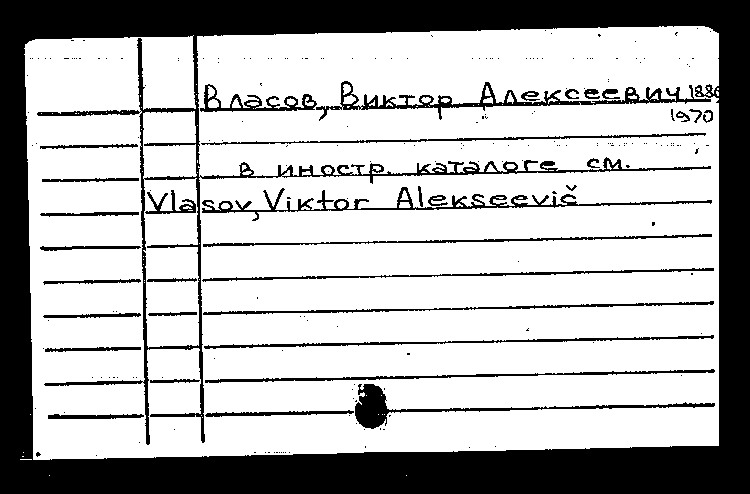 Власов, Виктор Алексеевич, 1886
1970
в иностр. каталоге см.
Vlasov, Viktor Alekseevič